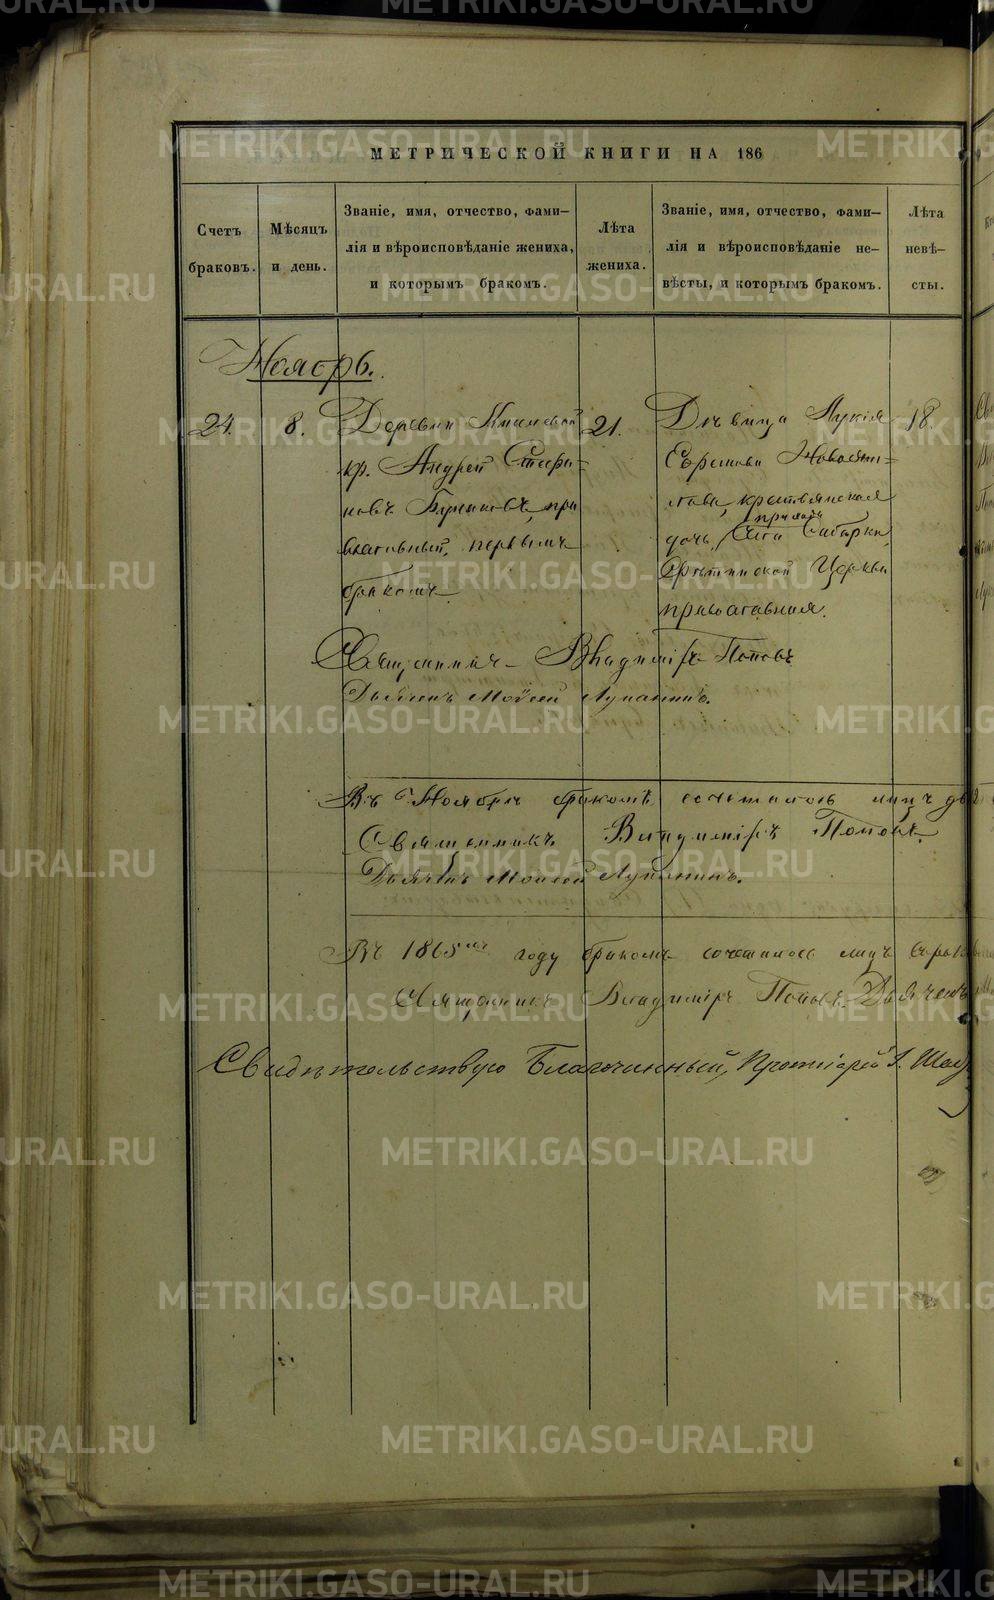 МЕТРИЧЕСКОЙ КНИГИ НА 186
Счетъ браковъ.
Мѣсяцъ и день.
Званіе, имя, отчество, фами-
лія и вѣроисповѣданіе жениха,
и которымъ бракомъ.
Лѣта жениха.
Званіе, имя, отчество, фами-
лія и вѣроисповѣданіе не-
вѣсты, и которымъ бракомъ.
Лѣта невѣ-
сты.
Ноябрь.
24. 8.
Деревни
кр. Андрей
православный, первымъ
бракомъ
21.
Дѣвица Лукія
крестьянская
дочь, Села прихода
Срѣтинской Церкви
православная.
18.
Священникъ Владиміръ Поповъ
Дьячекъ Моисей Лупанинъ.
Въ Ноябрѣ бракомъ сочеталось лицъ
Священникъ Владиміръ Поповъ
Дьячекъ Моисей Лупанинъ.
Въ 1865 году бракомъ сочеталось лицъ
Священникъ Владиміръ Поповъ Дьячекъ
Свидѣтельствую Благочинный, Протоіерей
METRIKI.GASO-URAL.RU